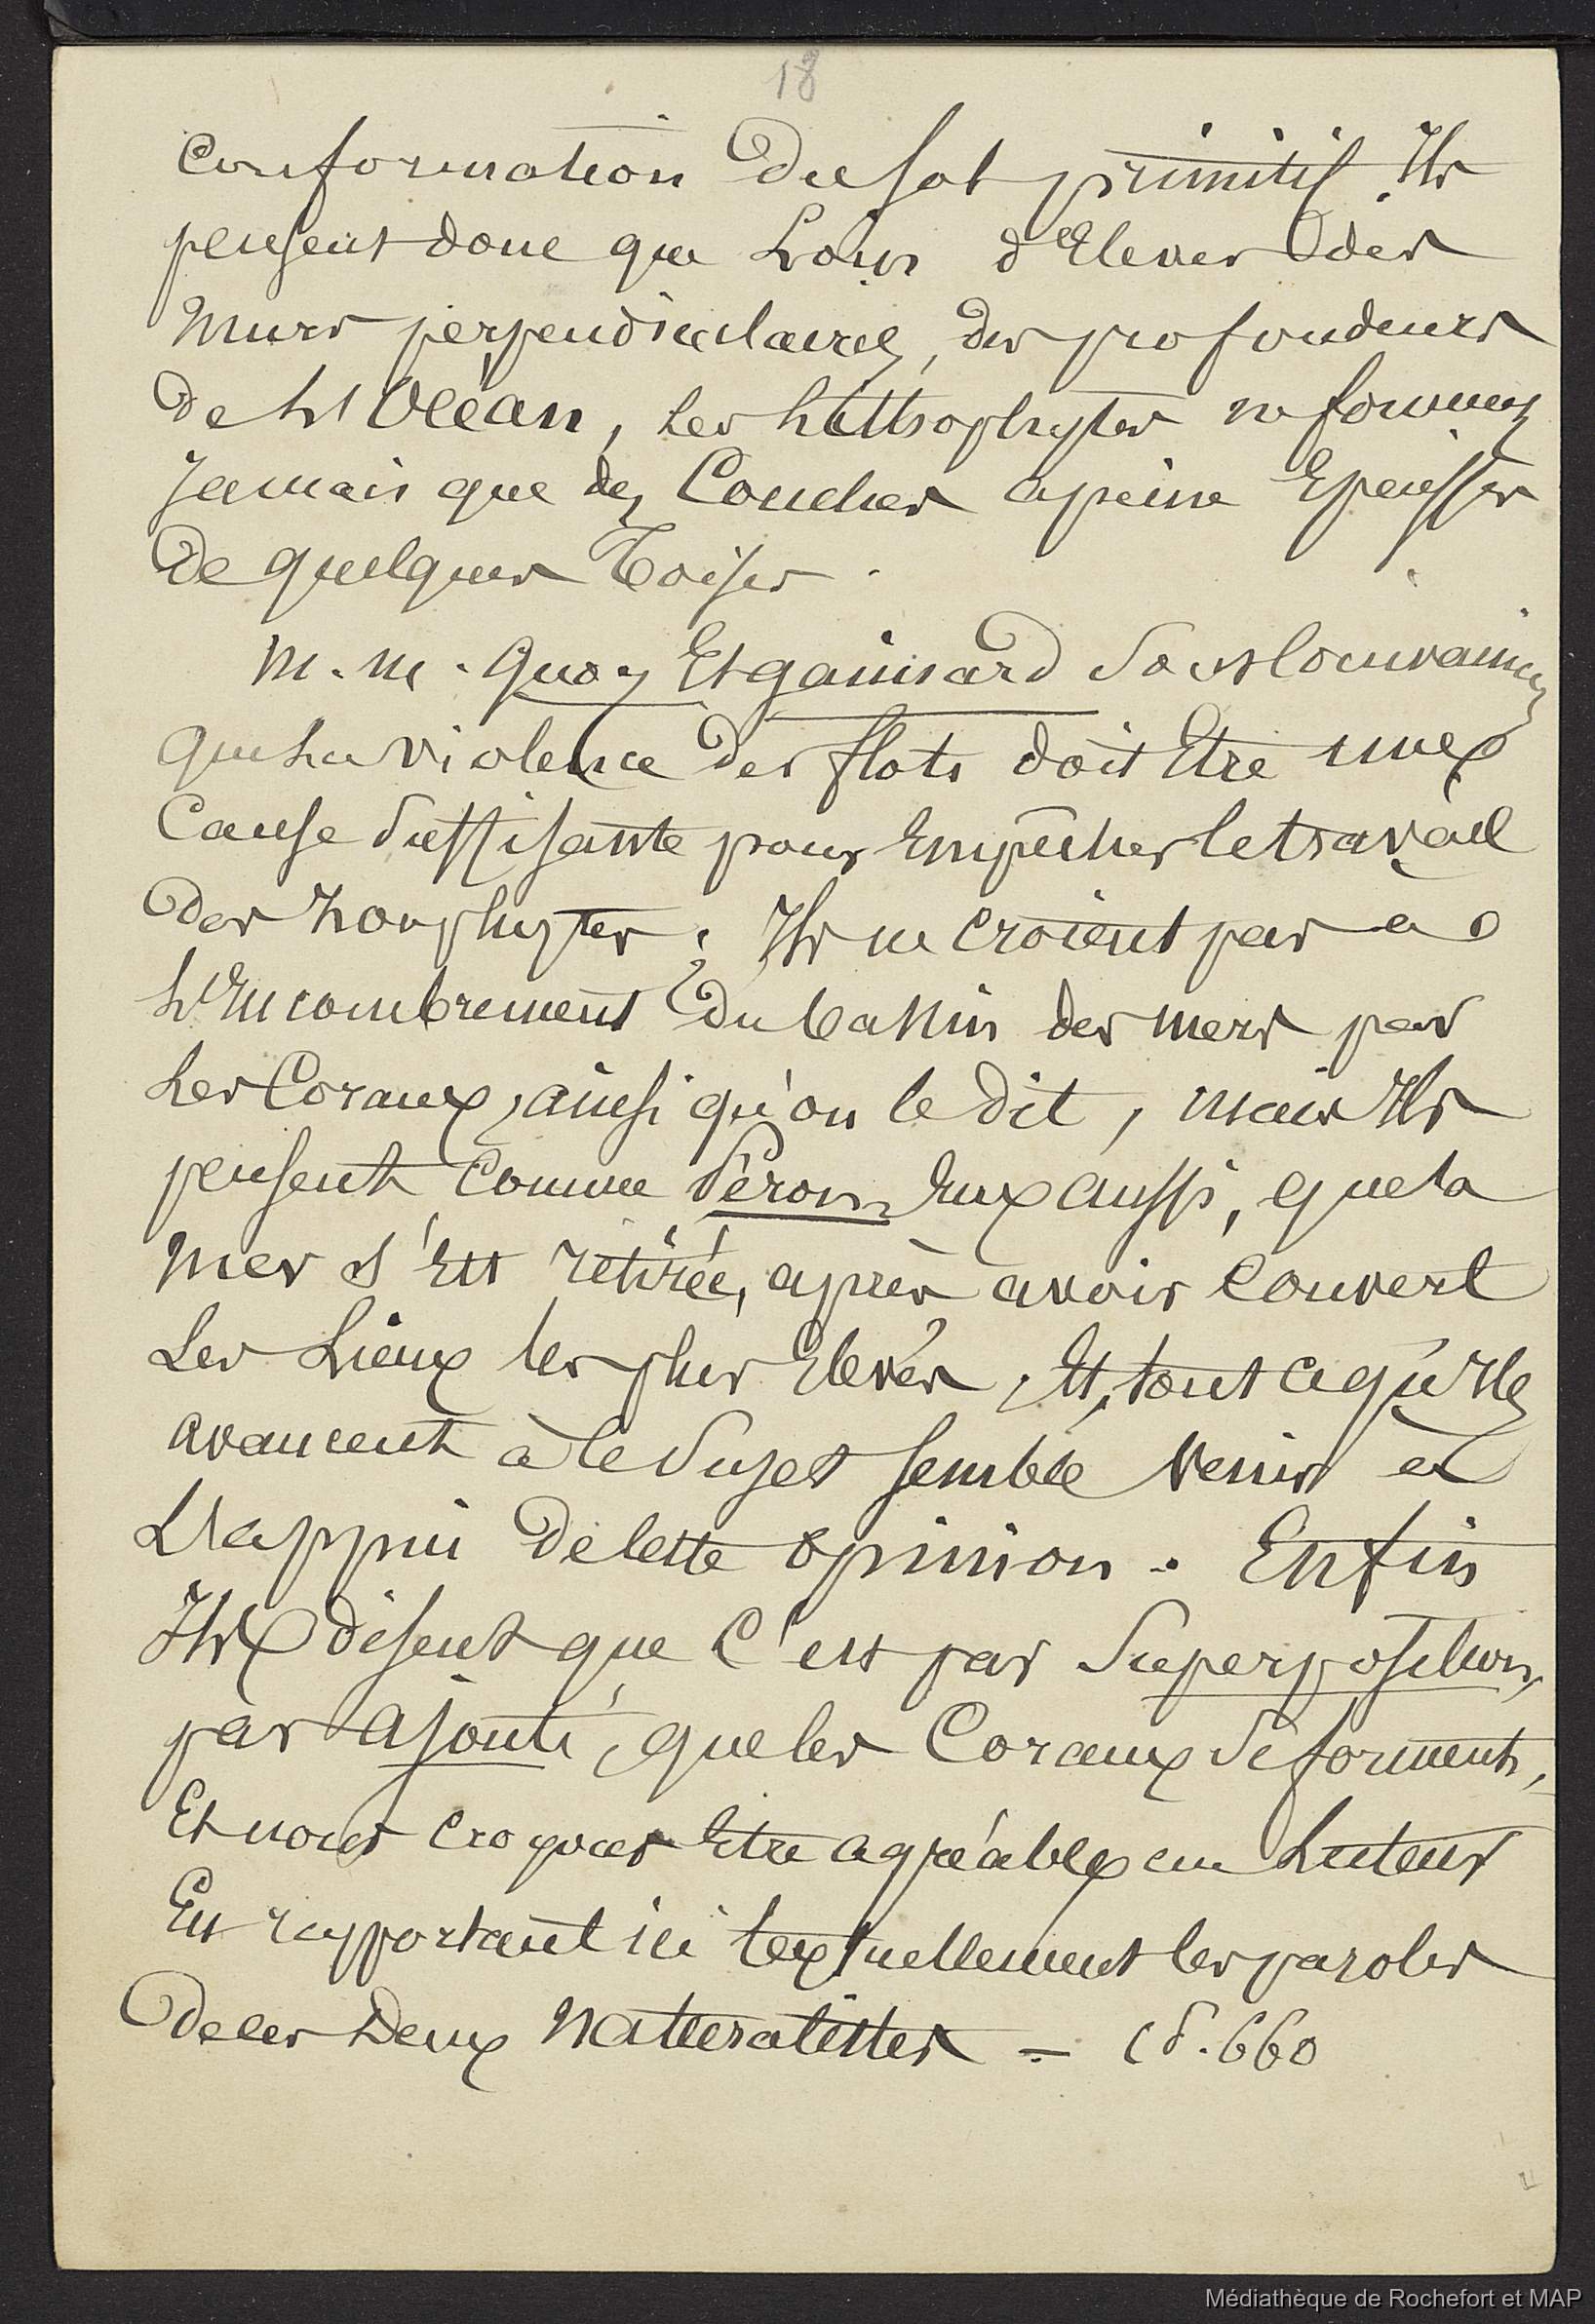 18
Conformation du sol primitif. Ils
pensent donc que Loin d'Elever des
Murs perpendiculaires, des profondeurs
de L'Océan, Les Litthophytes ne forment
Jamais que des Couches apeine Epaisses
de quelques Toises.
M.M. Quoy Et gaimard Sont Convaincus
que La violence des flots doit Etre une
Cause Suffisante pour Empêcher le travail
des Zoophytes ; Ils ne croient pas a
L'Encombrement du bassin des mers par
Les Coraux, ainsi qu'on le dit, mais Ils
pensent Comme Péron Eux aussi, que la
Mer s'Est retirée, après avoir Couvert
Les Lieux les plus Elevés, Et, tout ce qu'Ils
avancent à ce Sujet semble Venir à
L'appui de Cette opinion. Enfin
Ils disent que C'est par Superposition,
par ajouté, que les Coraux se forment,
Et nous croyons Etre agréable au Lecteur
En rapportant ici textuellement les paroles
de ces Deux Natteralistes = (S. 660
Médiathèque de Rochefort et MAP